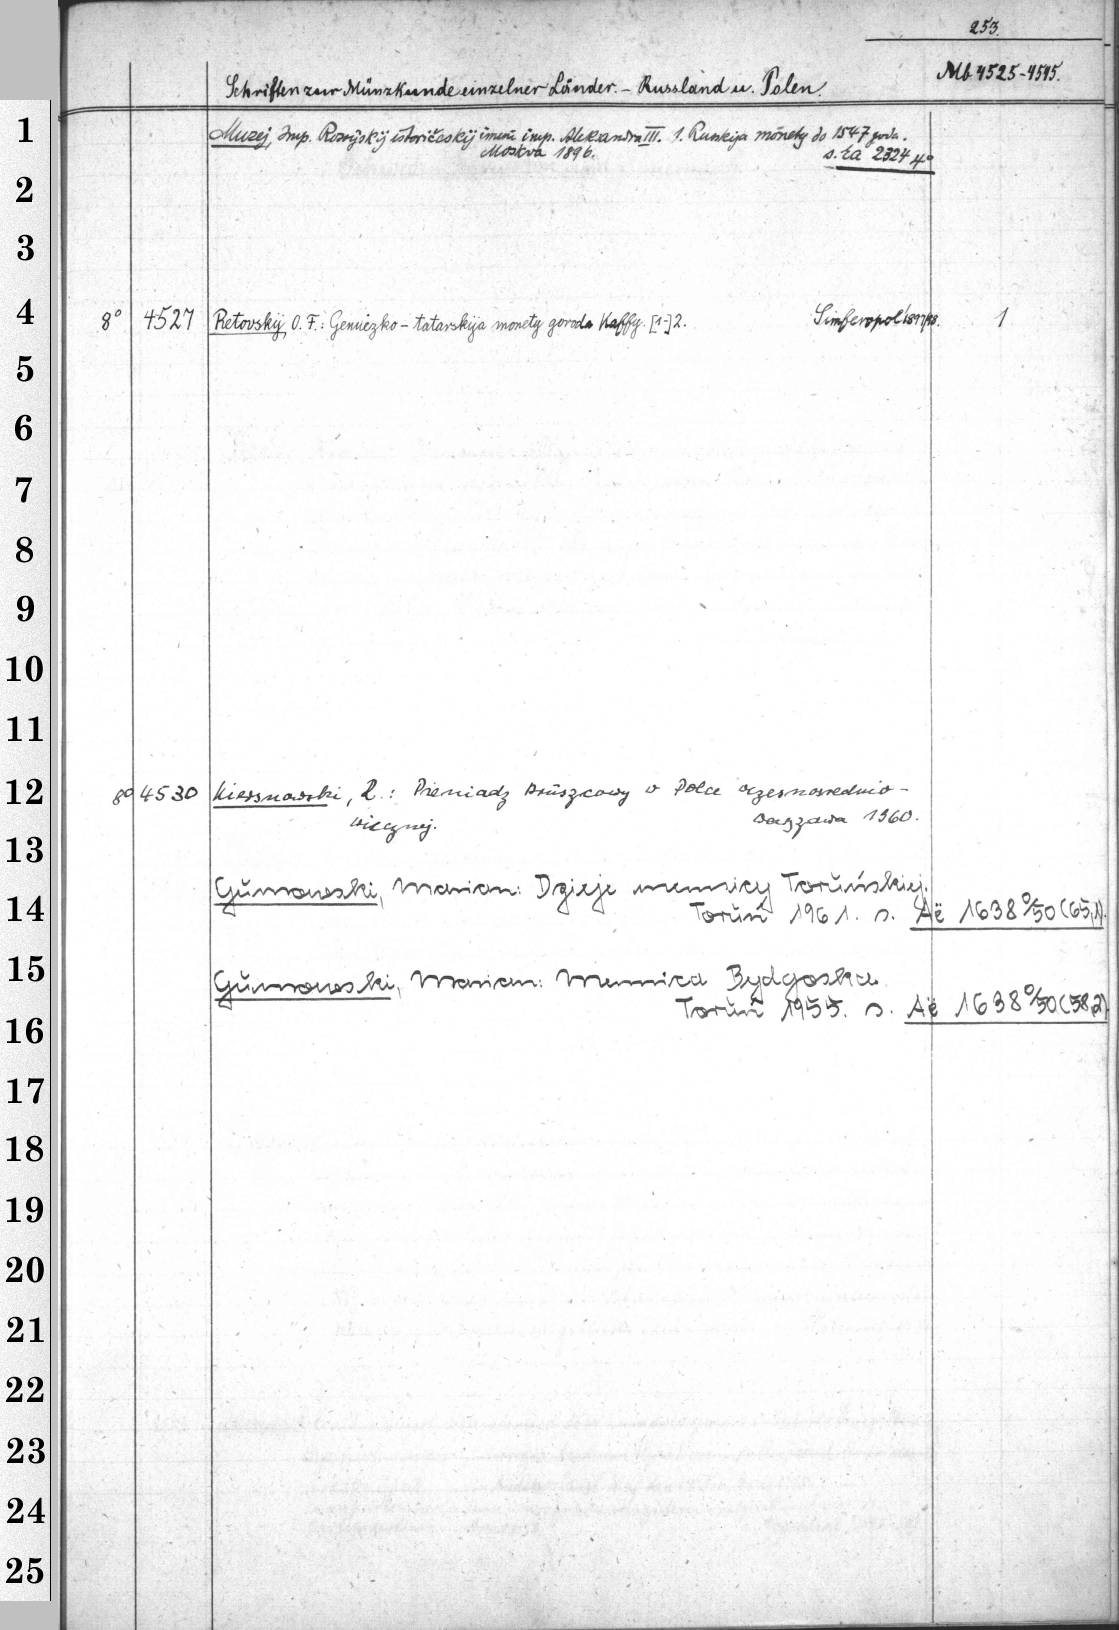 253.
Mb 4525-4545.
Schriften zur Münzkunde einzelner Länder. - Russland u. Polen.
1
Muzej, Imp. Rossijskij istoričeskij imeni imp. Aleksandra III. 1. Russkija monety do 1547 goda.
Moskva 1896. s. Ea 2324 4°
2
3
4
8° 4527 Retovskij, O. F.: Genuėzko-tatarskija monety goroda Kaffy. [1-]2. Simferopol' 1897/98. 1
5
6
7
8
9
10
11
12
8° 4530 Kiersnowski, R.: Pieniądz kruszcowy w Polce wczesnośrednio-
wiecznej. Warszawa 1960.
13
Gumowski, Marian: Dzieje mennicy Toruńskiej.
14
Toruń 1961. s. Aë 1638 %50 (65,1).
15
Gumowski, Marian: Mennica Bydgoska
Toruń 1955. s. Aë 1638 %50 (58,2).
16
17
18
19
20
21
22
23
24
25